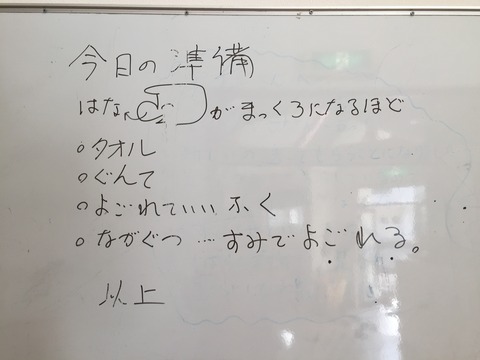 今日の準備
はながまっくろになるほど
○タオル
○ぐんて
○よごれていいふく
○ながぐつ…すみでよごれる。
以上